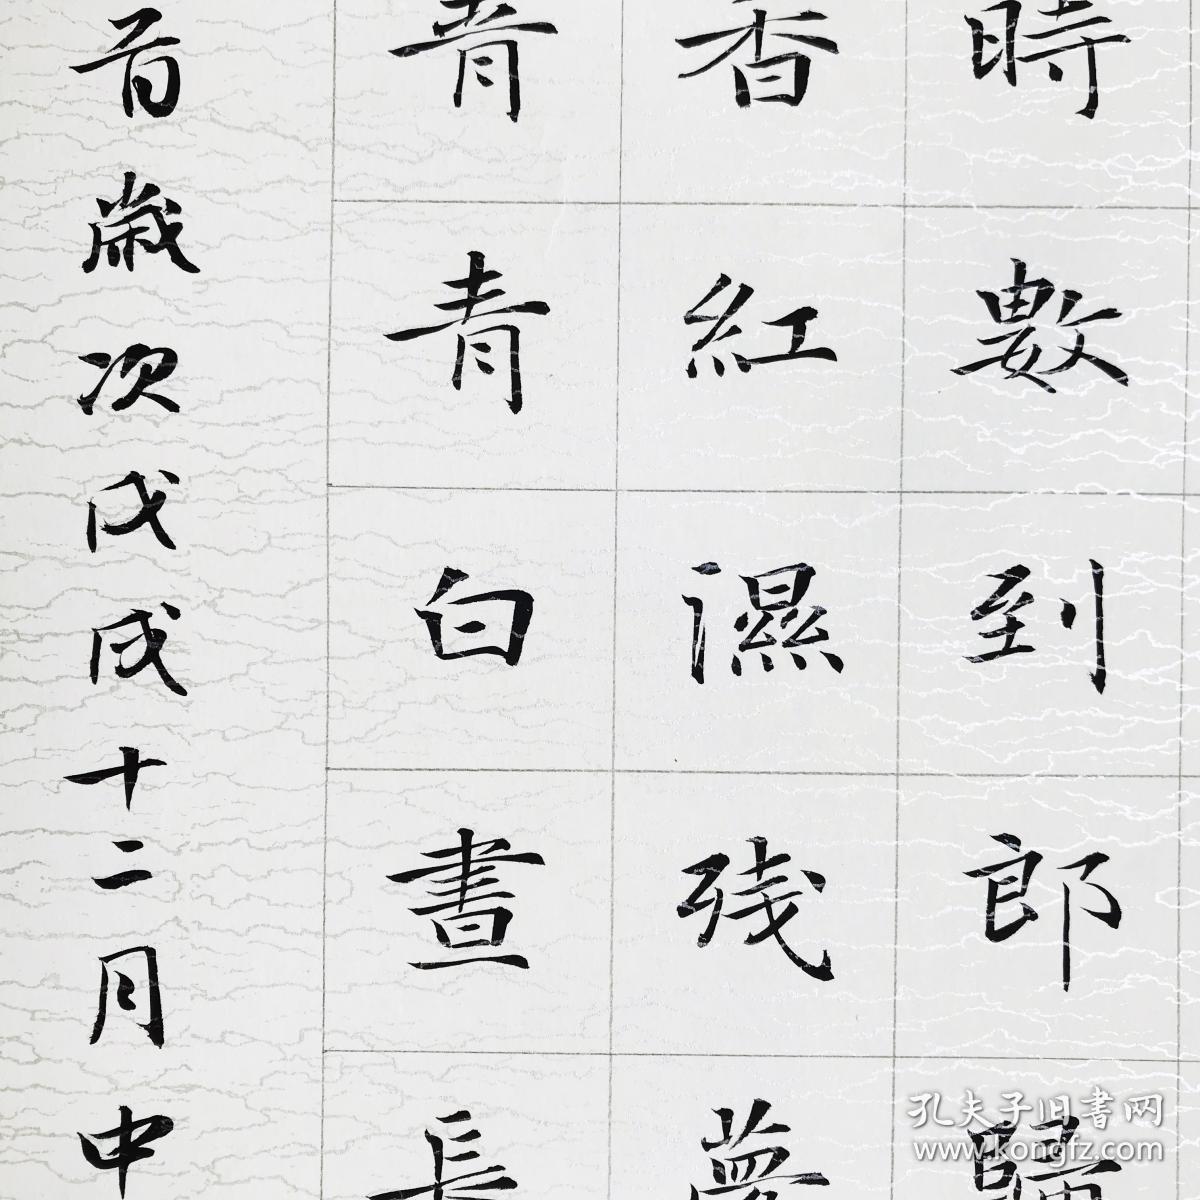 時數到郎歸
香紅濕残夢
青青白晝長
首歲次戊戌十二月中
孔夫子旧書网
www.kongfz.com